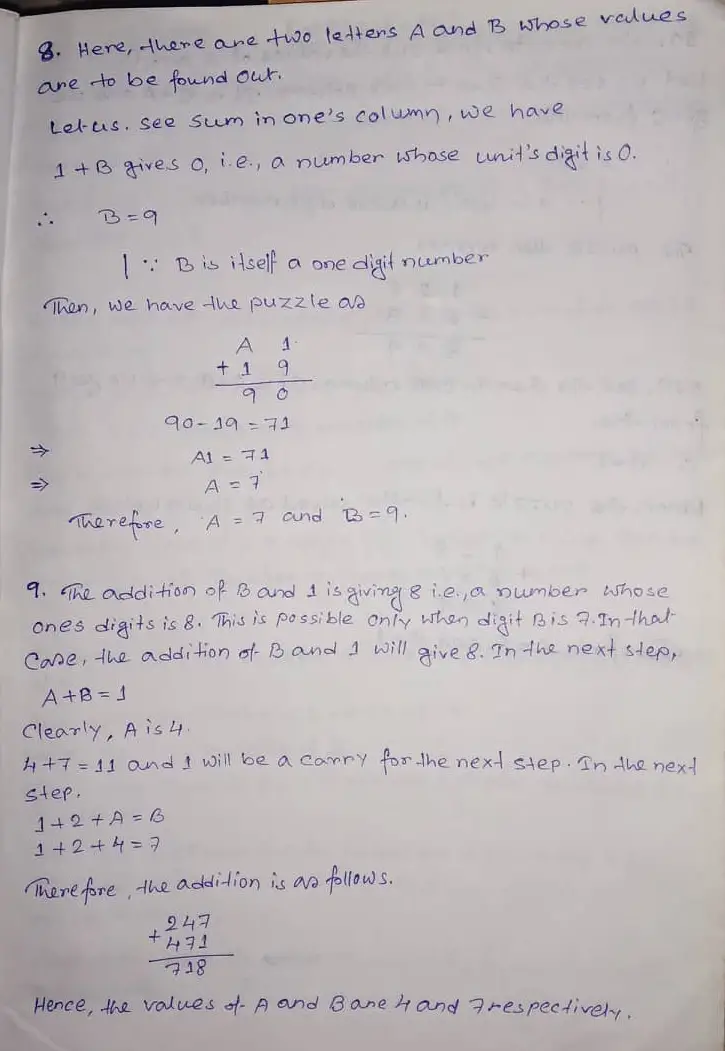 8. Here, there are two letters A and B whose values
are to be found out.
Let us. see sum in one's column, we have
1 + B gives 0, i.e., a number whose unit's digit is 0.
∴ B = 9
| ∵ B is itself a one digit number
Then, we have the puzzle as
A 1
+ 1 9
9 0
90 - 19 = 71
⇒ A1 = 71
⇒ A = 7
Therefore, A = 7 and B = 9.
9. The addition of B and 1 is giving 8 i.e., a number whose
ones digits is 8. This is possible only when digit B is 7. In that
case, the addition of B and 1 will give 8. In the next step,
A + B = 1
Clearly, A is 4.
4 + 7 = 11 and 1 will be a carry for the next step. In the next
step.
1 + 2 + A = B
1 + 2 + 4 = 7
Therefore, the addition is as follows.
247
+ 471
718
Hence, the values of A and B are 4 and 7 respectively.